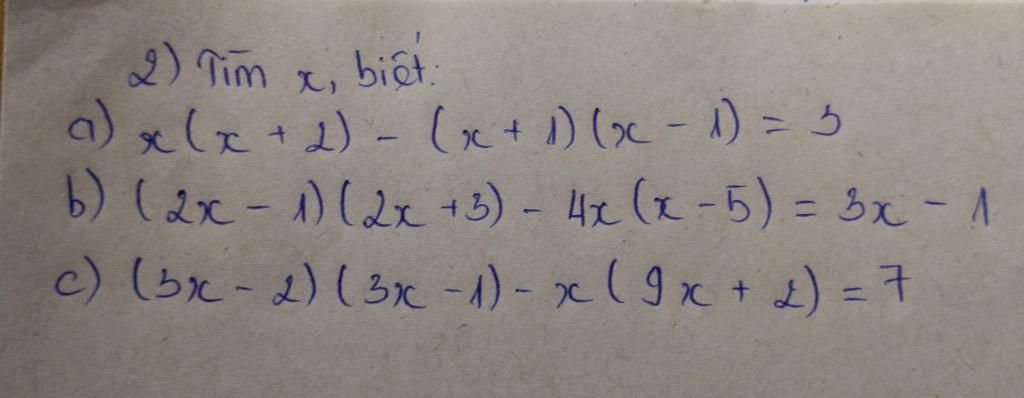 2) Tìm x, biết:
a) x(x + 2) - (x + 1)(x - 1) = 3
b) (2x - 1)(2x + 3) - 4x(x - 5) = 3x - 1
c) (3x - 2)(3x - 1) - x(9x + 2) = 7